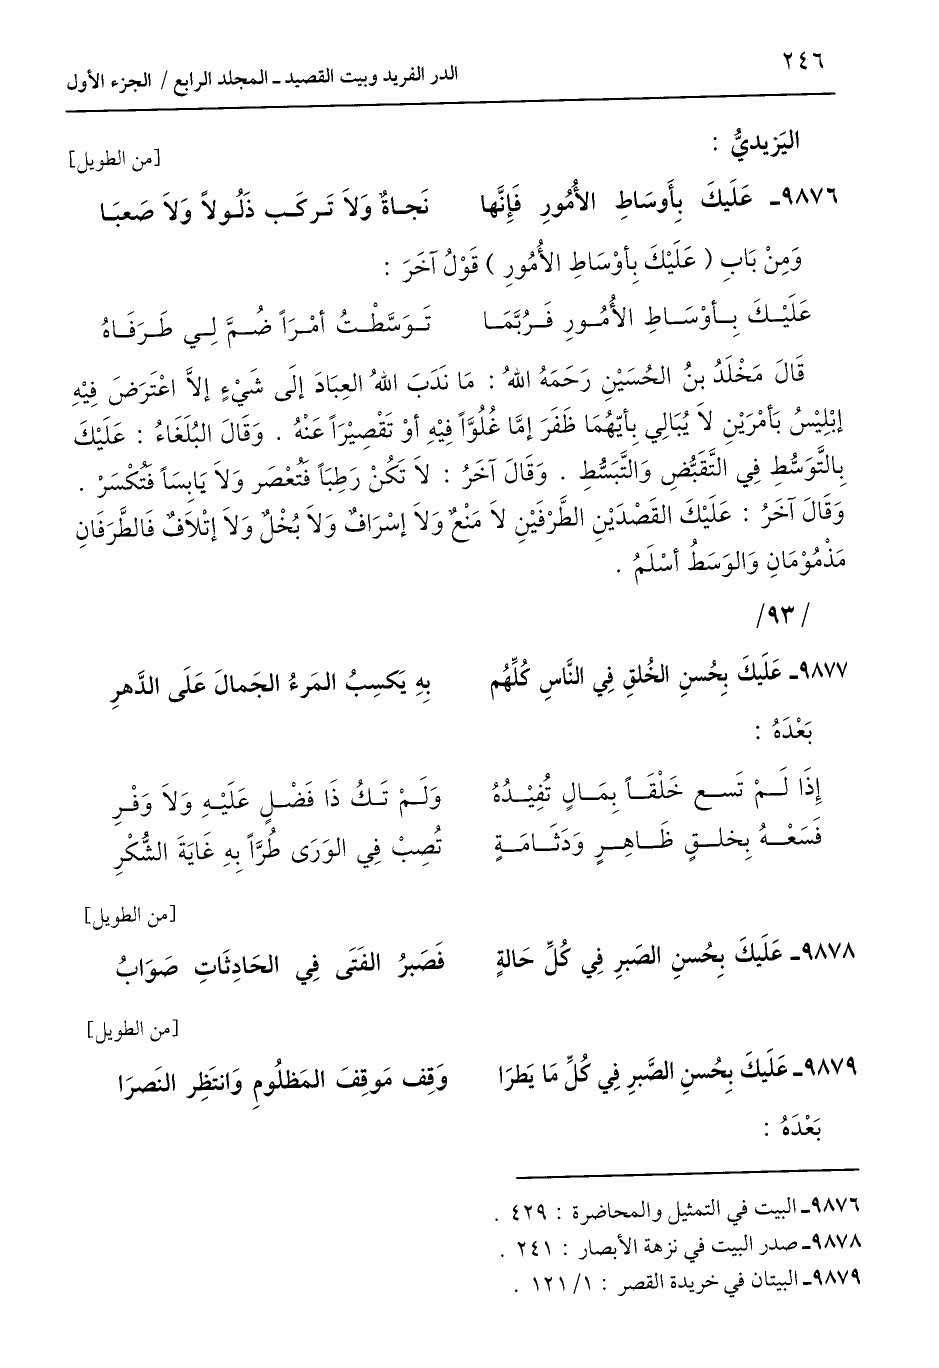 ٢٤٦
الدر الفريد وبيت القصيد ـ المجلد الرابع / الجزء الأول
اليَزيديُّ :
[من الطويل]
٩٨٧٦ـ عَلَيكَ بِأَوسَاطِ الأُمُورِ فَإِنَّها نَجاةٌ وَلاَ تَركَب ذَلُولاً وَلاَ صَعبَا
وَمِنْ بَابِ ( عَلَيْكَ بِأوْسَاطِ الأُمُورِ ) قَوْلُ آخَرَ :
عَلَيْكَ بِأوْسَاطِ الأُمُورِ فَرُبَّمَا تَوَسَّطْتُ أمْرَاً ضُمَّ لِي طَرَفَاهُ
قَالَ مَخْلَدُ بنُ الحُسَيْنِ رَحَمَهُ اللهُ : مَا نَدَبَ اللهُ العِبَادَ إلَى شَيْءٍ إلاَّ اعْتَرَضَ فِيْهِ
إبْلِيْسُ بَأمْرَيْنِ لاَ يُبَالِي بأيّهُمَا ظَفَرَ إمَّا غُلُوَّاً فِيْهِ أوْ تَقْصِيْرَاً عَنْهُ . وَقَالَ البُلَغَاءُ : عَلَيْكَ
بِالتَّوَسُّطِ فِي التَّقَبُّضِ وَالتَّبَسُّطِ . وَقَالَ آخَرُ : لاَ تَكُنْ رَطِبَاً فَتُعْصَر وَلاَ يَابِسَاً فَتُكْسَرْ .
وَقَالَ آخَرُ : عَلَيْكَ القَصْدَيْنِ الطَّرْفَيْنِ لاَ مَنْعٌ وَلاَ إسْرَافٌ وَلاَ بُخْلٌ وَلاَ إتْلاَفٌ فَالطَّرَفَانِ
مَذْمُوْمَانِ وَالوَسَطُ أسْلَمُ .
/ ٩٣/
٩٨٧٧ـ عَلَيكَ بِحُسنِ الخُلقِ فِي النَّاسِ كُلِّهُم بِهِ يَكسِبُ المَرءُ الجَمالَ عَلَى الدَّهرِ
بَعْدَهُ :
إِذَا لَمْ تَسع خَلْقَاً بِمَالٍ تُفِيْدُهُ وَلَمْ تَكُ ذَا فَضْلٍ عَلَيْهِ وَلاَ وَفْرِ
فَسَعْهُ بِخلقٍ ظَاهِرٍ وَدَثَامَةٍ تُصِبْ فِي الوَرَى طُرَّاً بِهِ غَايَةَ الشُّكْرِ
[من الطويل]
٩٨٧٨ـ عَلَيكَ بِحُسنِ الصَبرِ فِي كُلِّ حَالةٍ فَصَبرُ الفَتَى فِي الحَادِثَاتِ صَوَابُ
[من الطويل]
٩٨٧٩ـ عَلَيكَ بِحُسنِ الصَّبرِ فِي كُلِّ مَا يَطرَا وَقِف مَوقِفَ المَظلُومِ وَانتَظِر النَصرَا
بَعْدَهُ :
٩٨٧٦ـ البيت في التمثيل والمحاضرة : ٤٢٩ .
٩٨٧٨ـ صدر البيت في نزهة الأبصار : ٢٤١ .
٩٨٧٩ـ البيتان في خريدة القصر : ١/ ١٢١ .